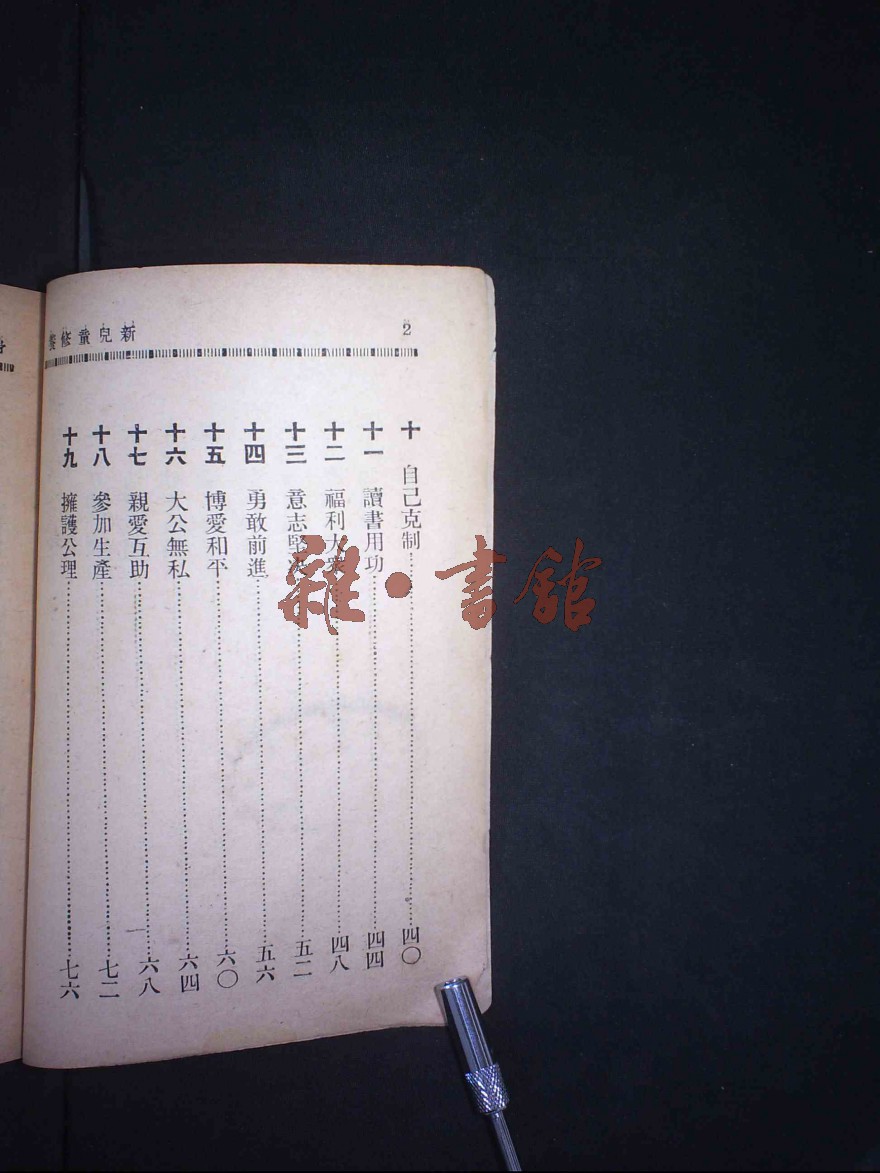 新兒童修養
2
十 自己克制 四〇
十一 讀書用功 四四
十二 福利大衆 四八
十三 意志堅 五二
十四 勇敢前進 五六
十五 博愛和平 六〇
十六 大公無私 六四
十七 親愛互助 六八
十八 參加生產 七二
十九 擁護公理 七六
雜·書館